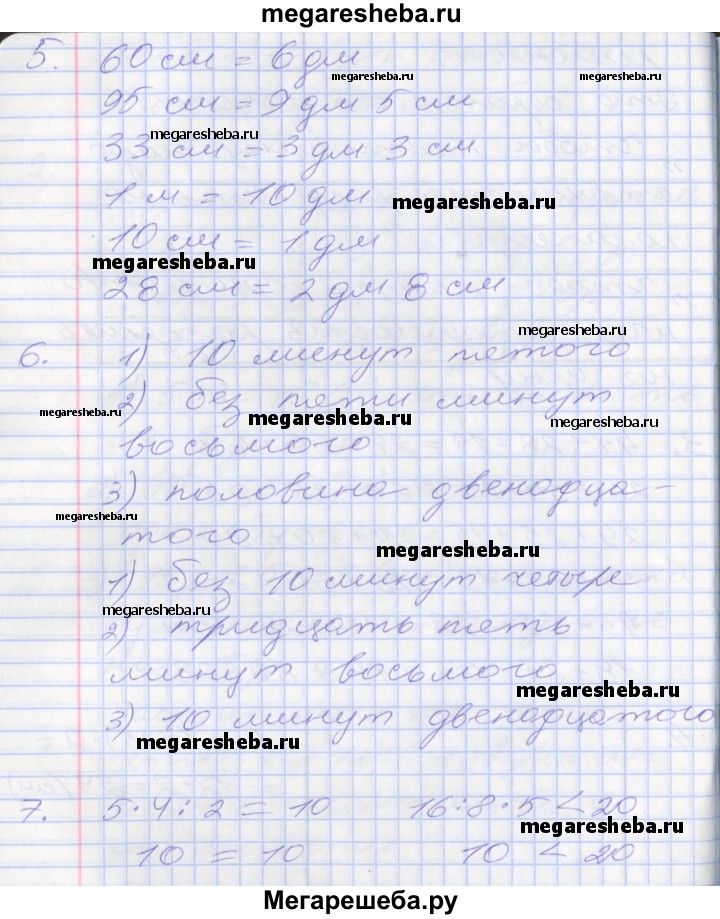 megaresheba.ru
5. 60 см = 6 дм
megaresheba.ru megaresheba.ru
95 см = 9 дм 5 см
megaresheba.ru
33 см = 3 дм 3 см
1 м = 10 дм
megaresheba.ru
10 см = 1 дм
megaresheba.ru
28 см = 2 дм 8 см
megaresheba.ru
6. 1) 10 минут пятого
2) без пяти минут
megaresheba.ru megaresheba.ru megaresheba.ru
восьмого
3) половина двенадца-
megaresheba.ru
того
megaresheba.ru
1) без 10 минут четыре
megaresheba.ru
2) тридцать пять
минут восьмого
megaresheba.ru
3) 10 минут двенадцатого
megaresheba.ru
7. 5·4:2 = 10 16:8·5 < 20
megaresheba.ru
10 = 10 10 < 20
megaresheba.ru
Мегарешеба.ру